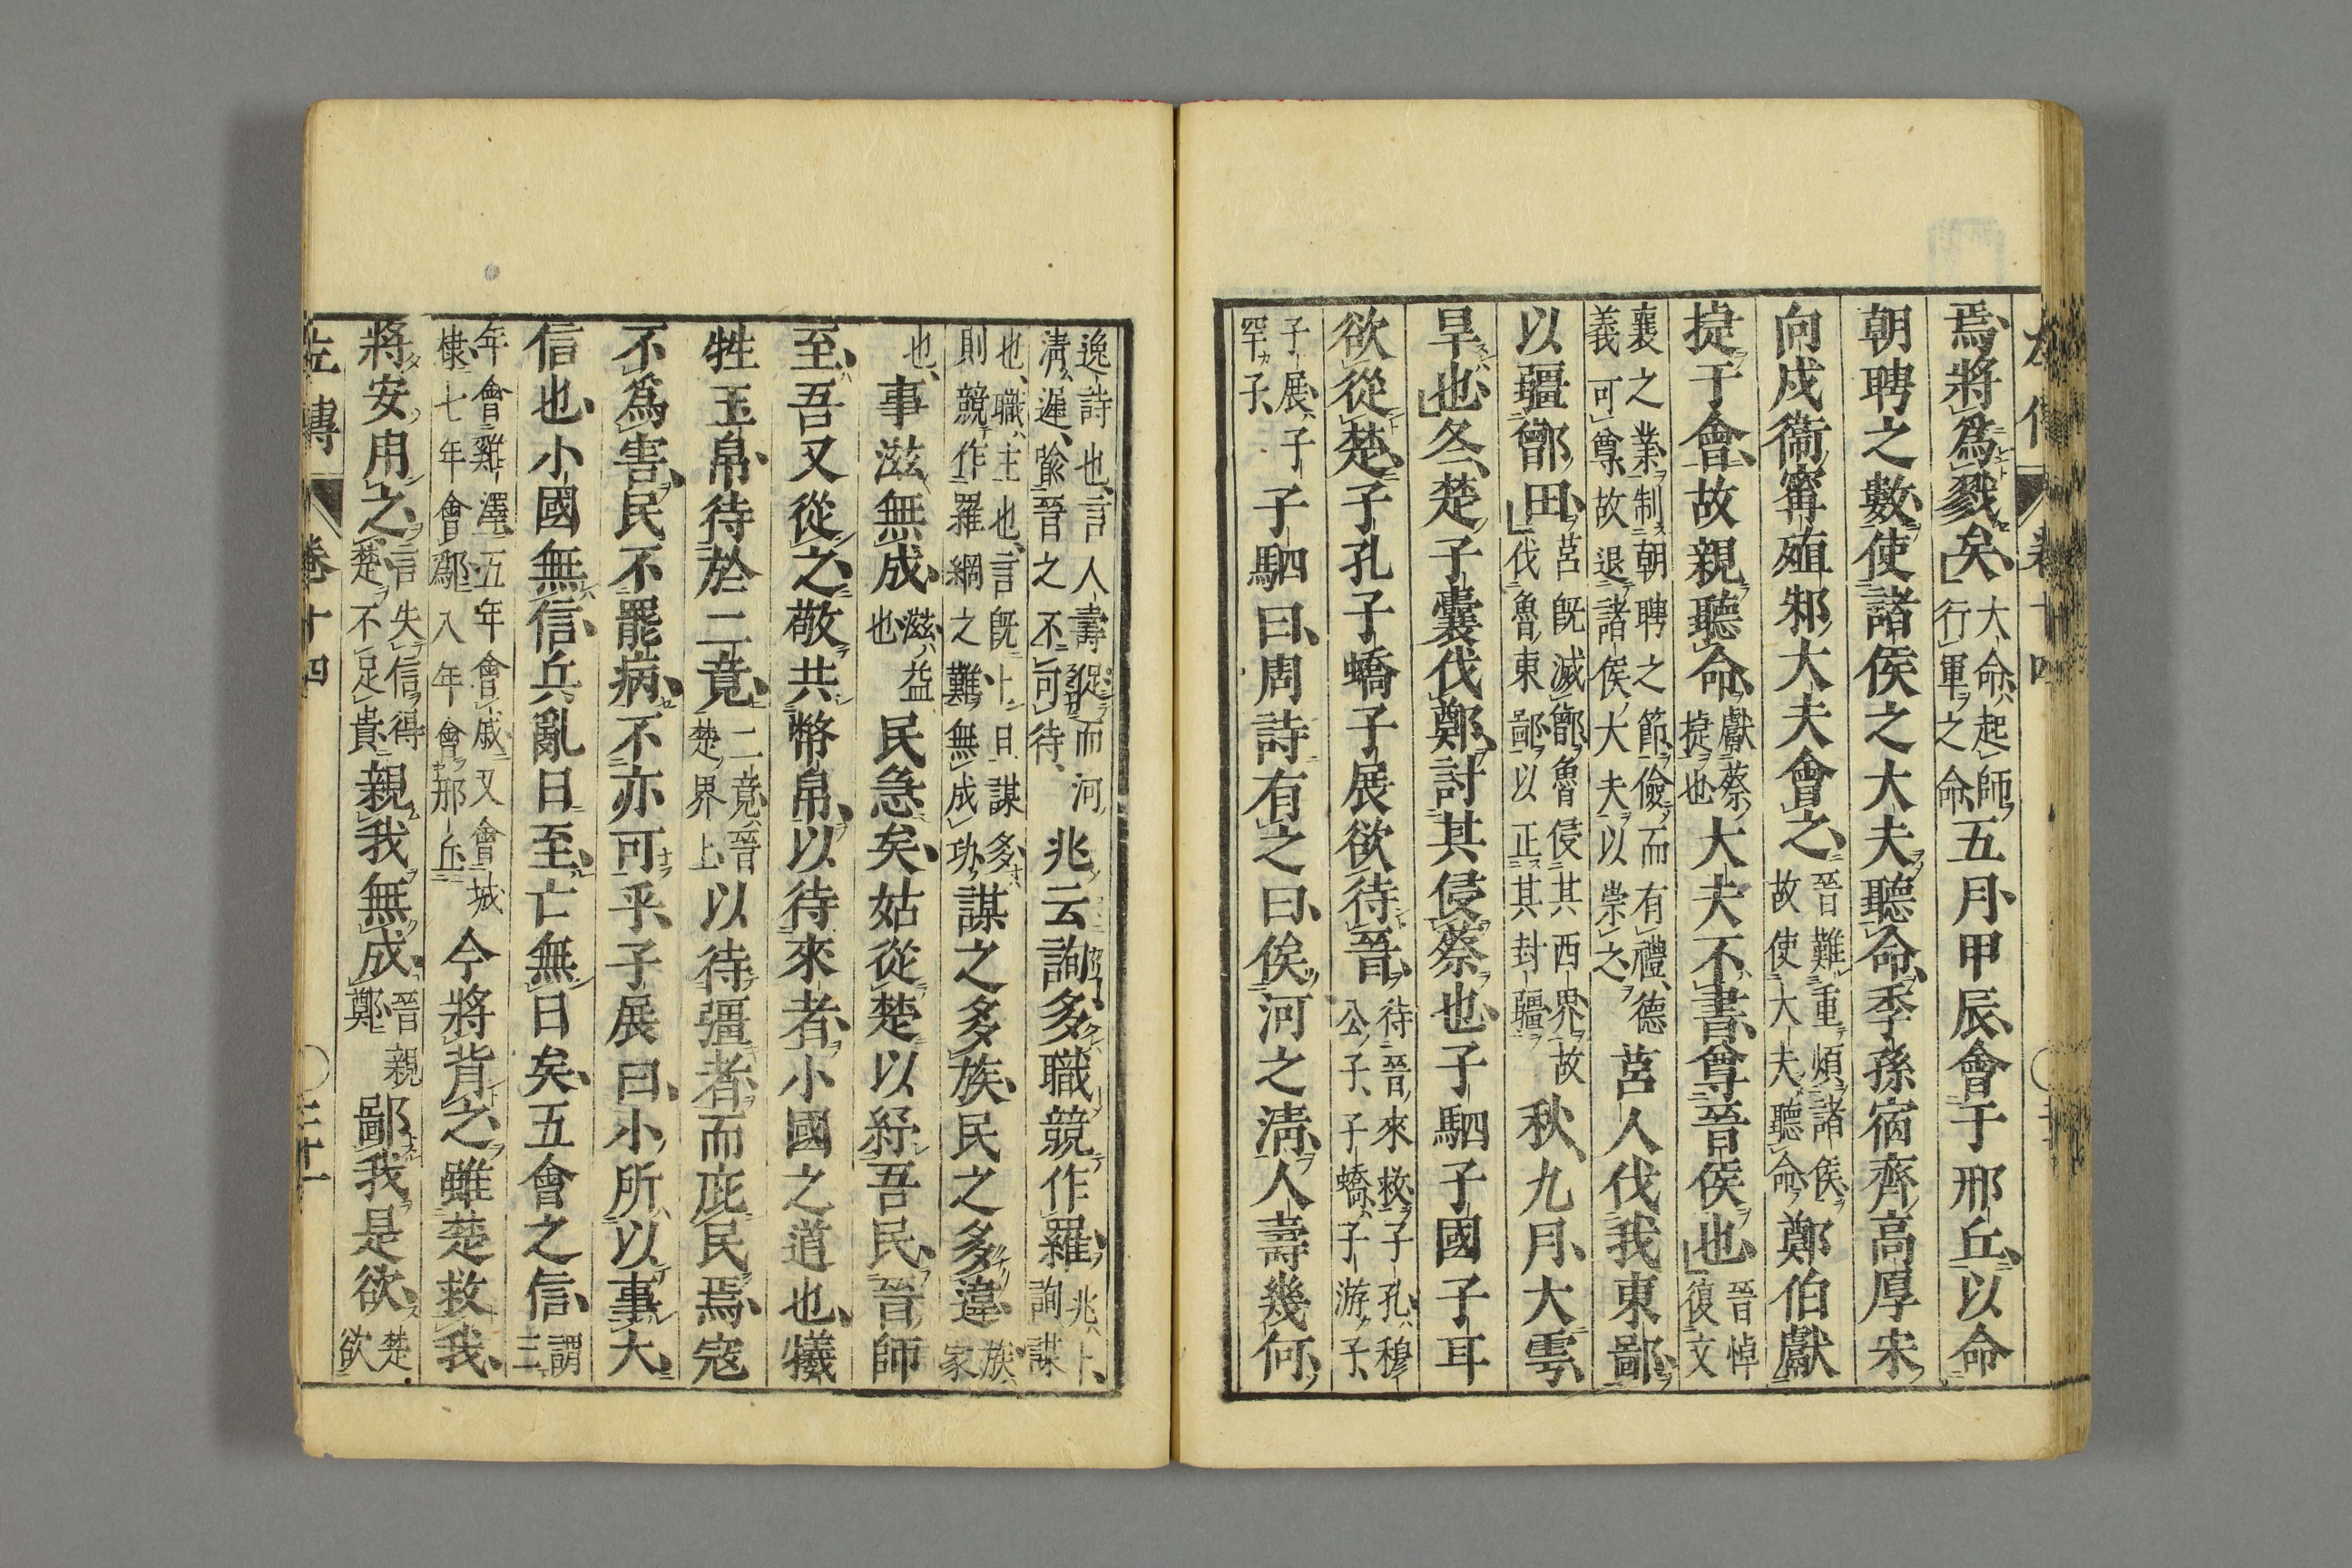 焉將爲戮矣大命起師行軍之命五月甲辰會于邢丘以命
朝聘之數使諸侯之大夫聽命季孫宿齊高厚宋
向戌衞甯殖邾大夫會之晉難重煩諸侯故使大夫聽命鄭伯獻
捷于會故親聽命獻蔡捷也大夫不書尊晉侯也晉悼復文
襄之業制朝聘之節儉而有禮德義可尊故退諸侯大夫以崇之莒人伐我東鄙
以疆鄫田莒既滅鄫魯侵其西界故伐魯東鄙以正其封疆秋九月大雩
旱也冬楚子囊伐鄭討其侵蔡也子駟子國子耳
欲從楚子孔子蟜子展欲待晉待晉來救子孔穆公子子蟜子游子
子展子罕子子駟曰周詩有之曰俟河之淸人壽幾何
逸詩也言人壽促而河淸遲喩晉之不可待兆云詢多職競作羅兆卜詢謀
也職主也言既卜且謀多則競作羅網之難無成功謀之多族民之多違族家
也事滋無成滋益也民急矣姑從楚以紓吾民晉師
至吾又從之敬共幣帛以待來者小國之道也犧
牲玉帛待於二竟二竟晉楚界上以待彊者而庇民焉寇
不爲害民不罷病不亦可乎子展曰小所以事大
信也小國無信兵亂日至亡無日矣五會之信謂三
年會雞澤五年會戚又會城棣七年會鄬八年會邢丘今將背之雖楚救我
將安用之言失信得楚不足貴親我無成晉親鄭鄙我是欲楚欲
左傳 卷十四 〇二十一